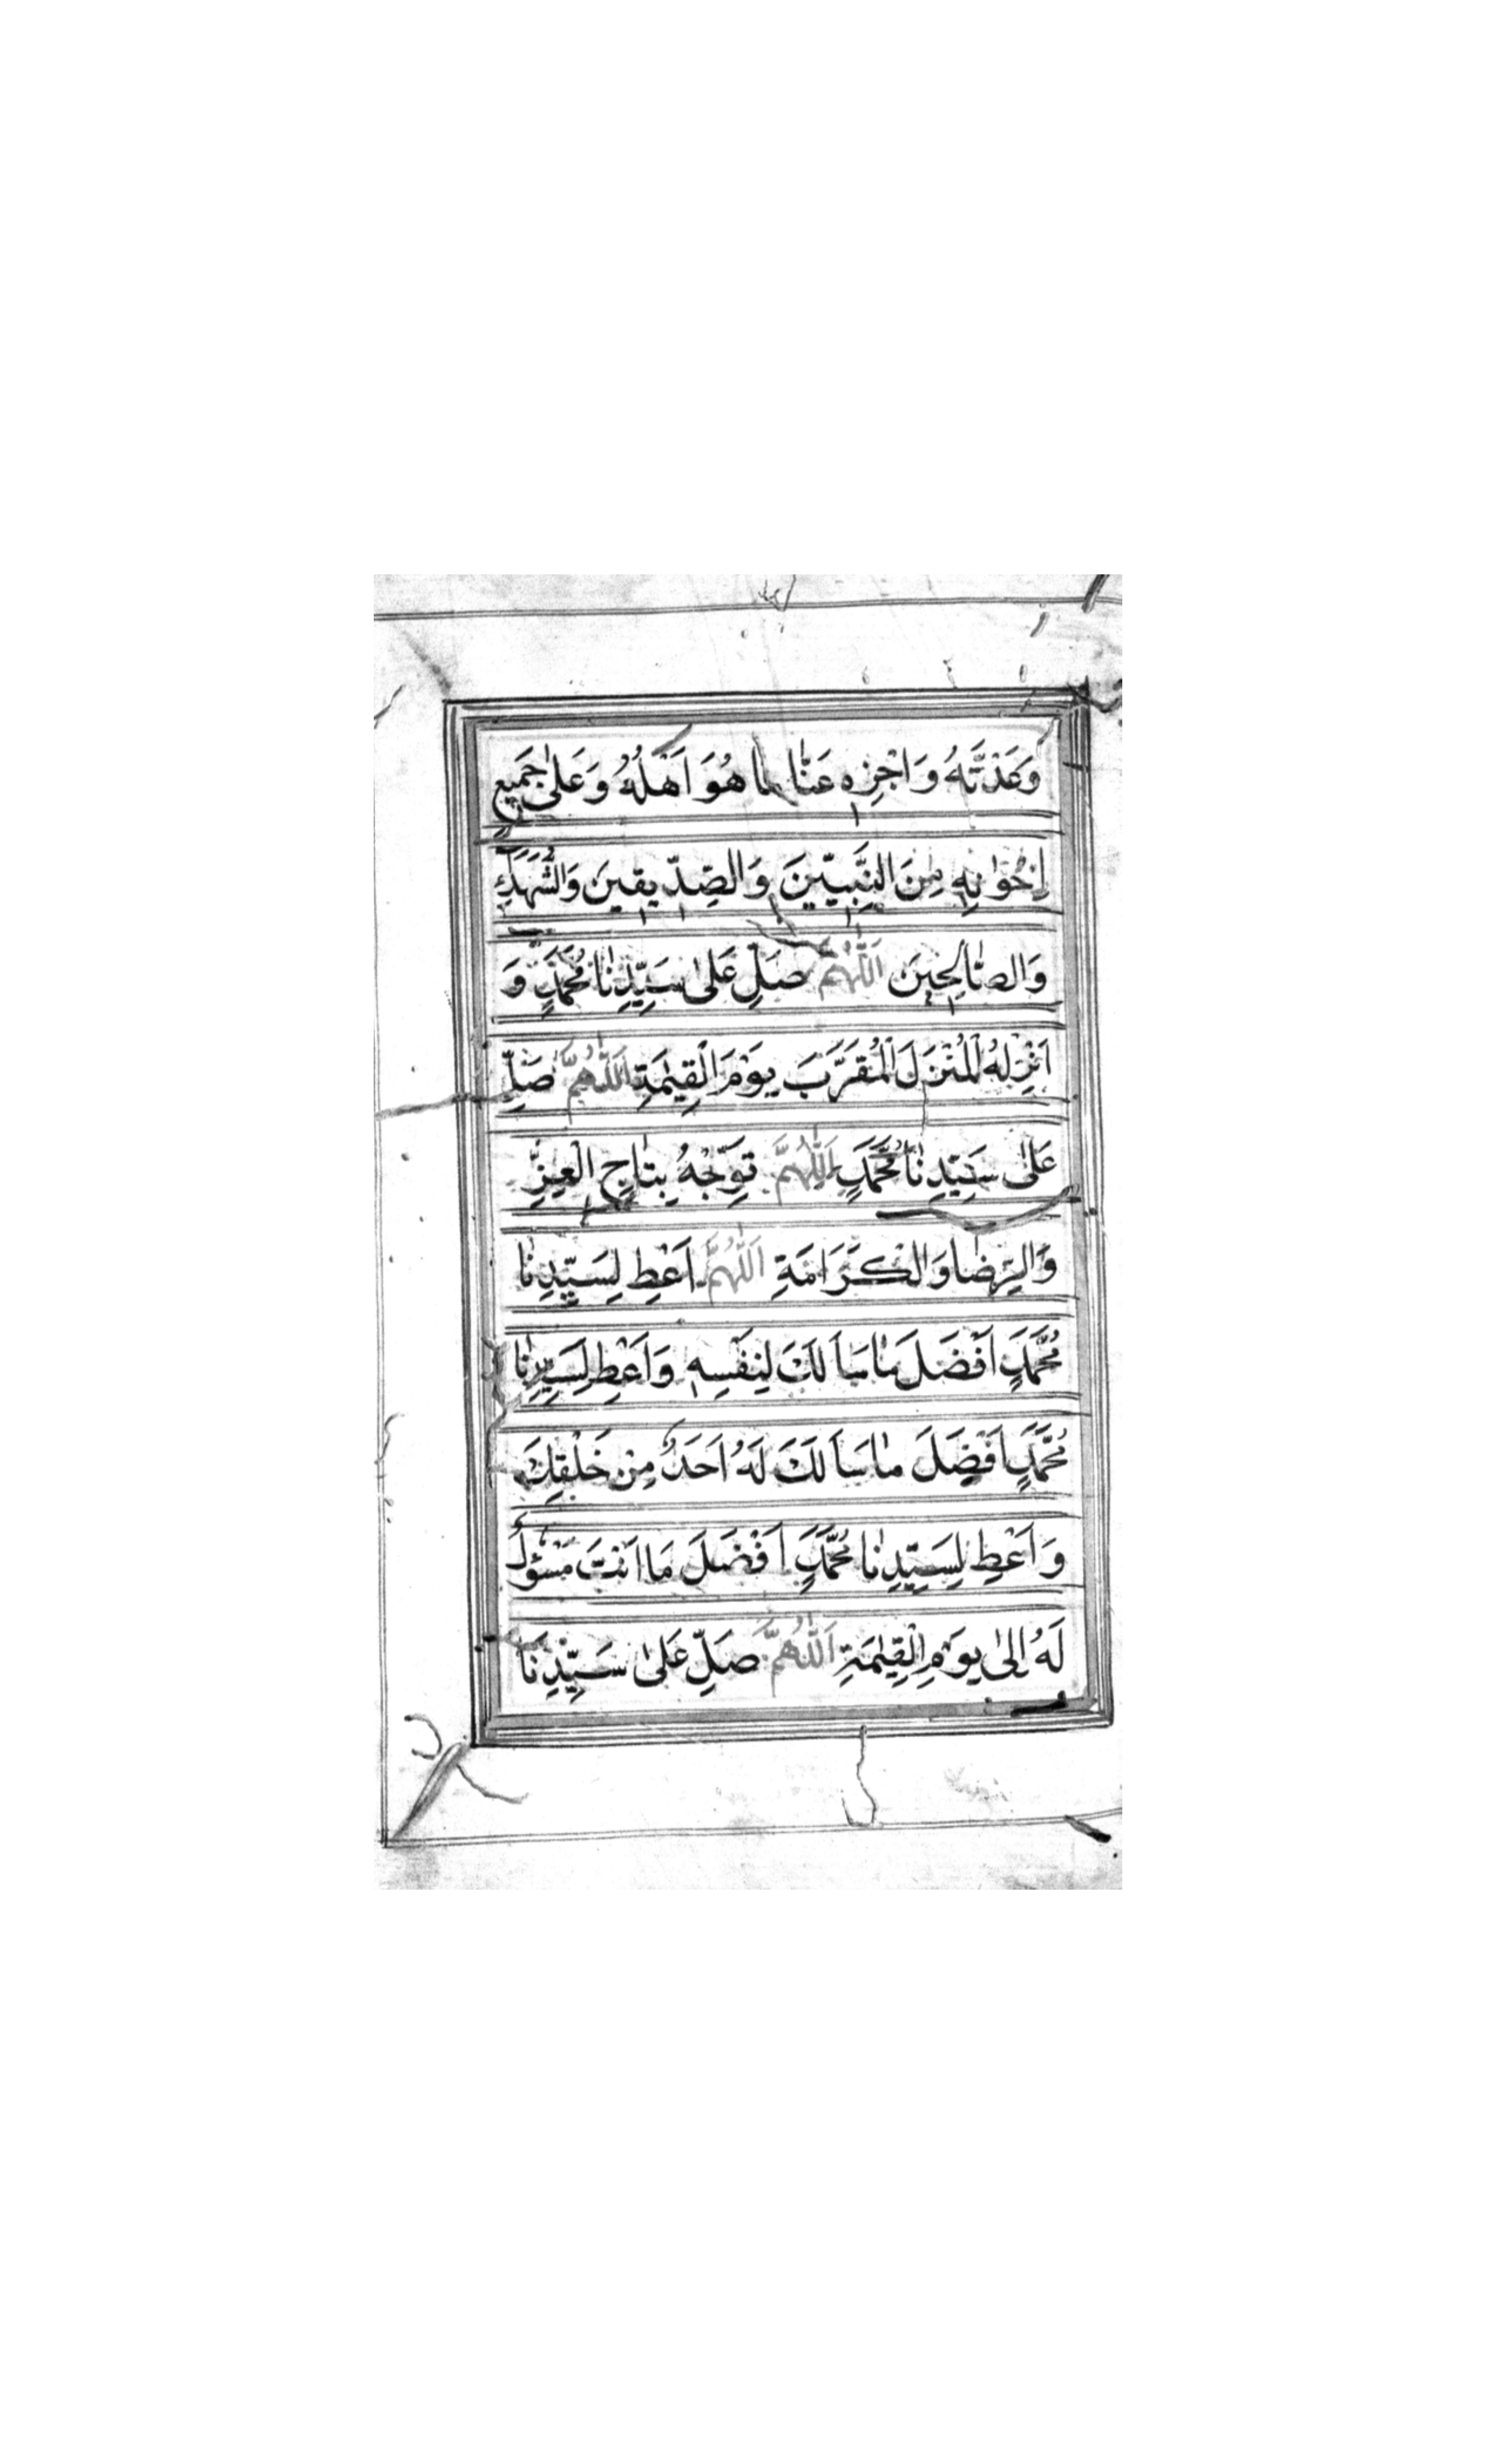 وَعَدْتَهُ وَاجْزِهٖ عَنَّا مَا هُوَ اَهْلُهُ وَعَلٰى جَمِيعِ
اِخْوَانِهٖ مِنَ النَّبِيّينَ وَالصِّدّيقينَ وَالشُّهَدَاءِ
وَالصَّالِحينَ اَللّٰهُمَّ صَلِّ عَلٰى سَيِّدِنَا مُحَمَّدٍ وَ
اَنْزِلْهُ الْمُنْزَلَ الْمُقَرَّبَ يَوْمَ الْقِيٰمَةِ اَللّٰهُمَّ صَلِّ
عَلٰى سَيِّدِنَا مُحَمَّدٍ اَللّٰهُمَّ تَوِّجْهُ بِتَاجِ الْعِزِّ
وَالرِّضَا وَالْكَرَامَةِ اَللّٰهُمَّ اَعْطِ لِسَيِّدِنَا
مُحَمَّدٍ اَفْضَلَ مَا سَاَلَكَ لِنَفْسِهٖ وَاَعْطِ لِسَيِّدِنَا
مُحَمَّدٍ اَفْضَلَ مَا سَاَلَكَ لَهُ اَحَدٌ مِنْ خَلْقِكَ
وَاَعْطِ لِسَيِّدِنَا مُحَمَّدٍ اَفْضَلَ مَا اَنْتَ مَسْؤُلٌ
لَهُ اِلٰى يَوْمِ الْقِيٰمَةِ اَللّٰهُمَّ صَلِّ عَلٰى سَيِّدِنَا